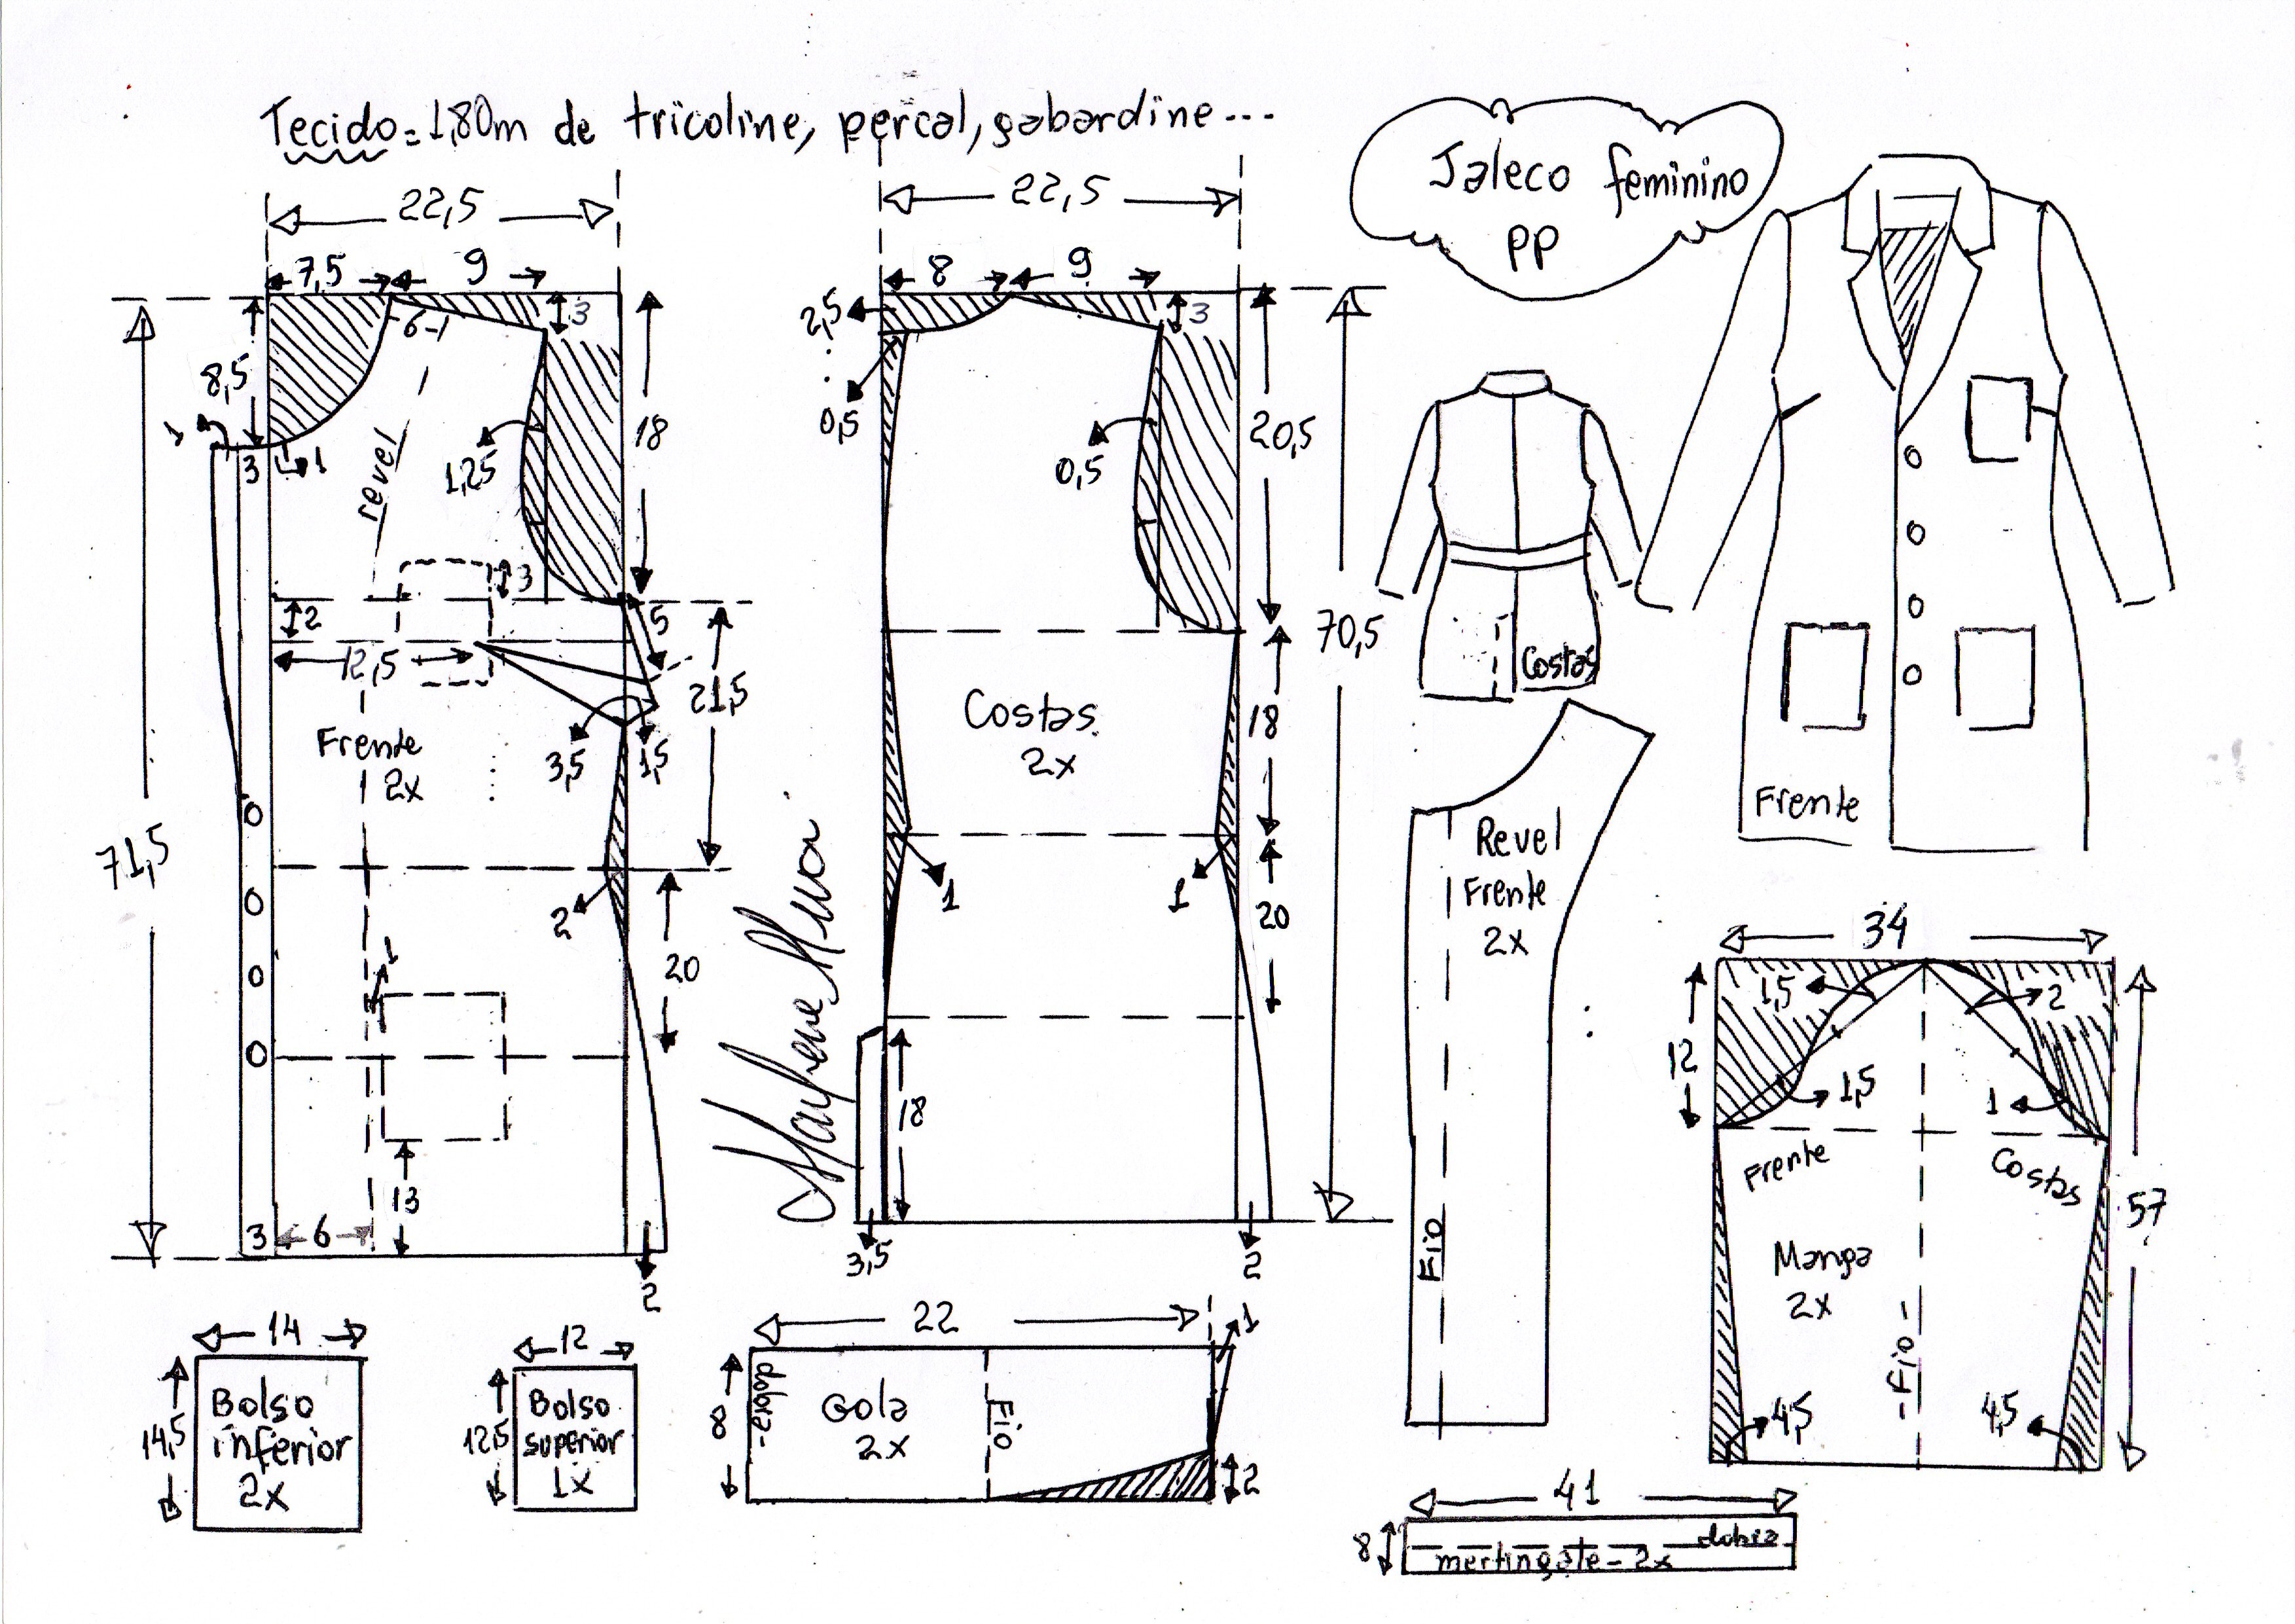 Tecido= 1,80m de tricoline, percal, gabardine...
Jaleco feminino
PP
22,5
7,5
9
3
6
8,5
1
3
1
revel
1,25
18
3
2
12,5
5
21,5
3,5
1,5
Frente
2x
71,5
2
20
1
13
3
6
2
22,5
8
9
2,5
3
0,5
0,5
20,5
70,5
Costas
2x
18
1
1
20
18
3,5
2
Marlene Mukai
Costas
Frente
Revel
Frente
2x
Fio
34
1,5
2
12
1,5
1
Frente
Costas
57
Manga
2x
-Fio-
4,5
4,5
14
14,5
Bolso
inferior
2x
12
12,5
Bolso
superior
1x
22
1
8
dobra-
Gola
2x
Fio
2
41
8
dobra
mertingale-2x